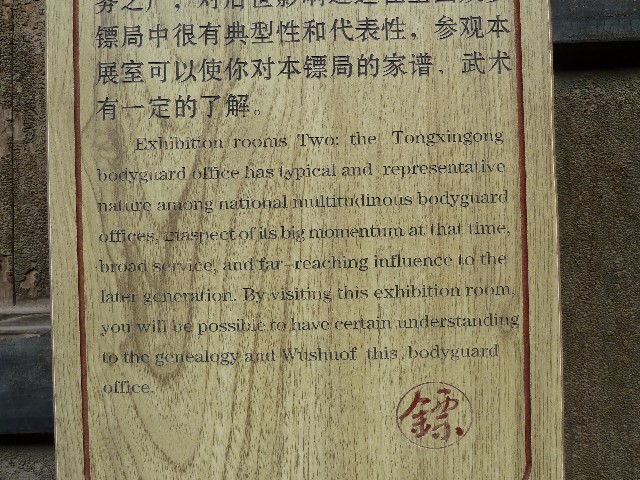 务之广，对后世影响
镖局中很有典型性和代表性，参观本
展室可以使你对本镖局的家谱，武术
有一定的了解。
Exhibition rooms Two: the Tongxingong
bodyguard office has typical and representative
nature among national multitudinous bodyguard
offices, inaspect of its big momentum at that time,
broad service, and far-reaching influence to the
later generation. By visiting this exhibition room,
you will be possible to have certain understanding
to the genealogy and Wushuof this bodyguard
office.
镖